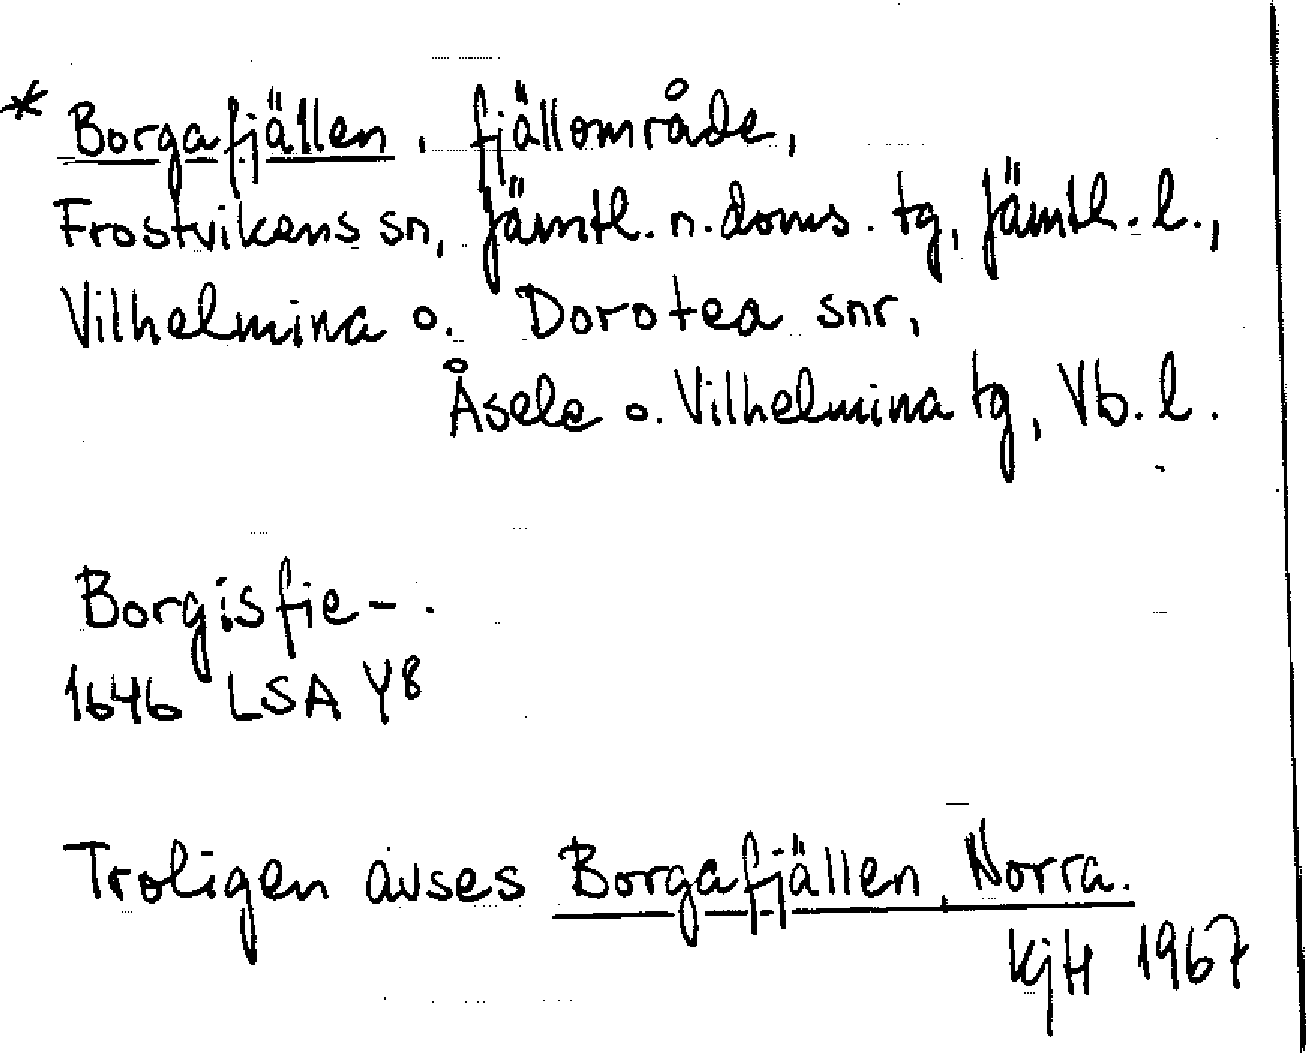 * Borgafjällen, fjällområde,
Frostvikens sn, Jämtl. n. doms. tg, Jämtl. l.,
Vilhelmina o. Dorotea snr,
Åsele o. Vilhelmina tg, Vb. l.
Borgisfie-.
1646 LSA Y8
Troligen avses Borgafjällen, Norra.
KjH 1967